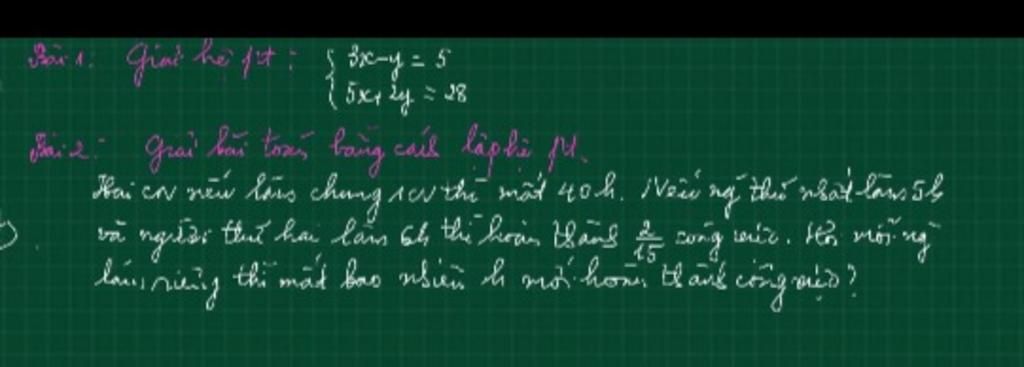 Bài 1: Giải hệ pt: { 3x-y = 5
5x+2y = 28
Bài 2: Giải bài toán bằng cách lập hệ pt.
Hai CN nếu làm chung 1 CV thì mất 40h. Nếu ng thứ nhất làm 5h
và người thứ hai làm 6h thì hoàn thành 2/15 công việc. Hỏi mỗi ng
làm riêng thì mất bao nhiêu h mới hoàn thành công việc?